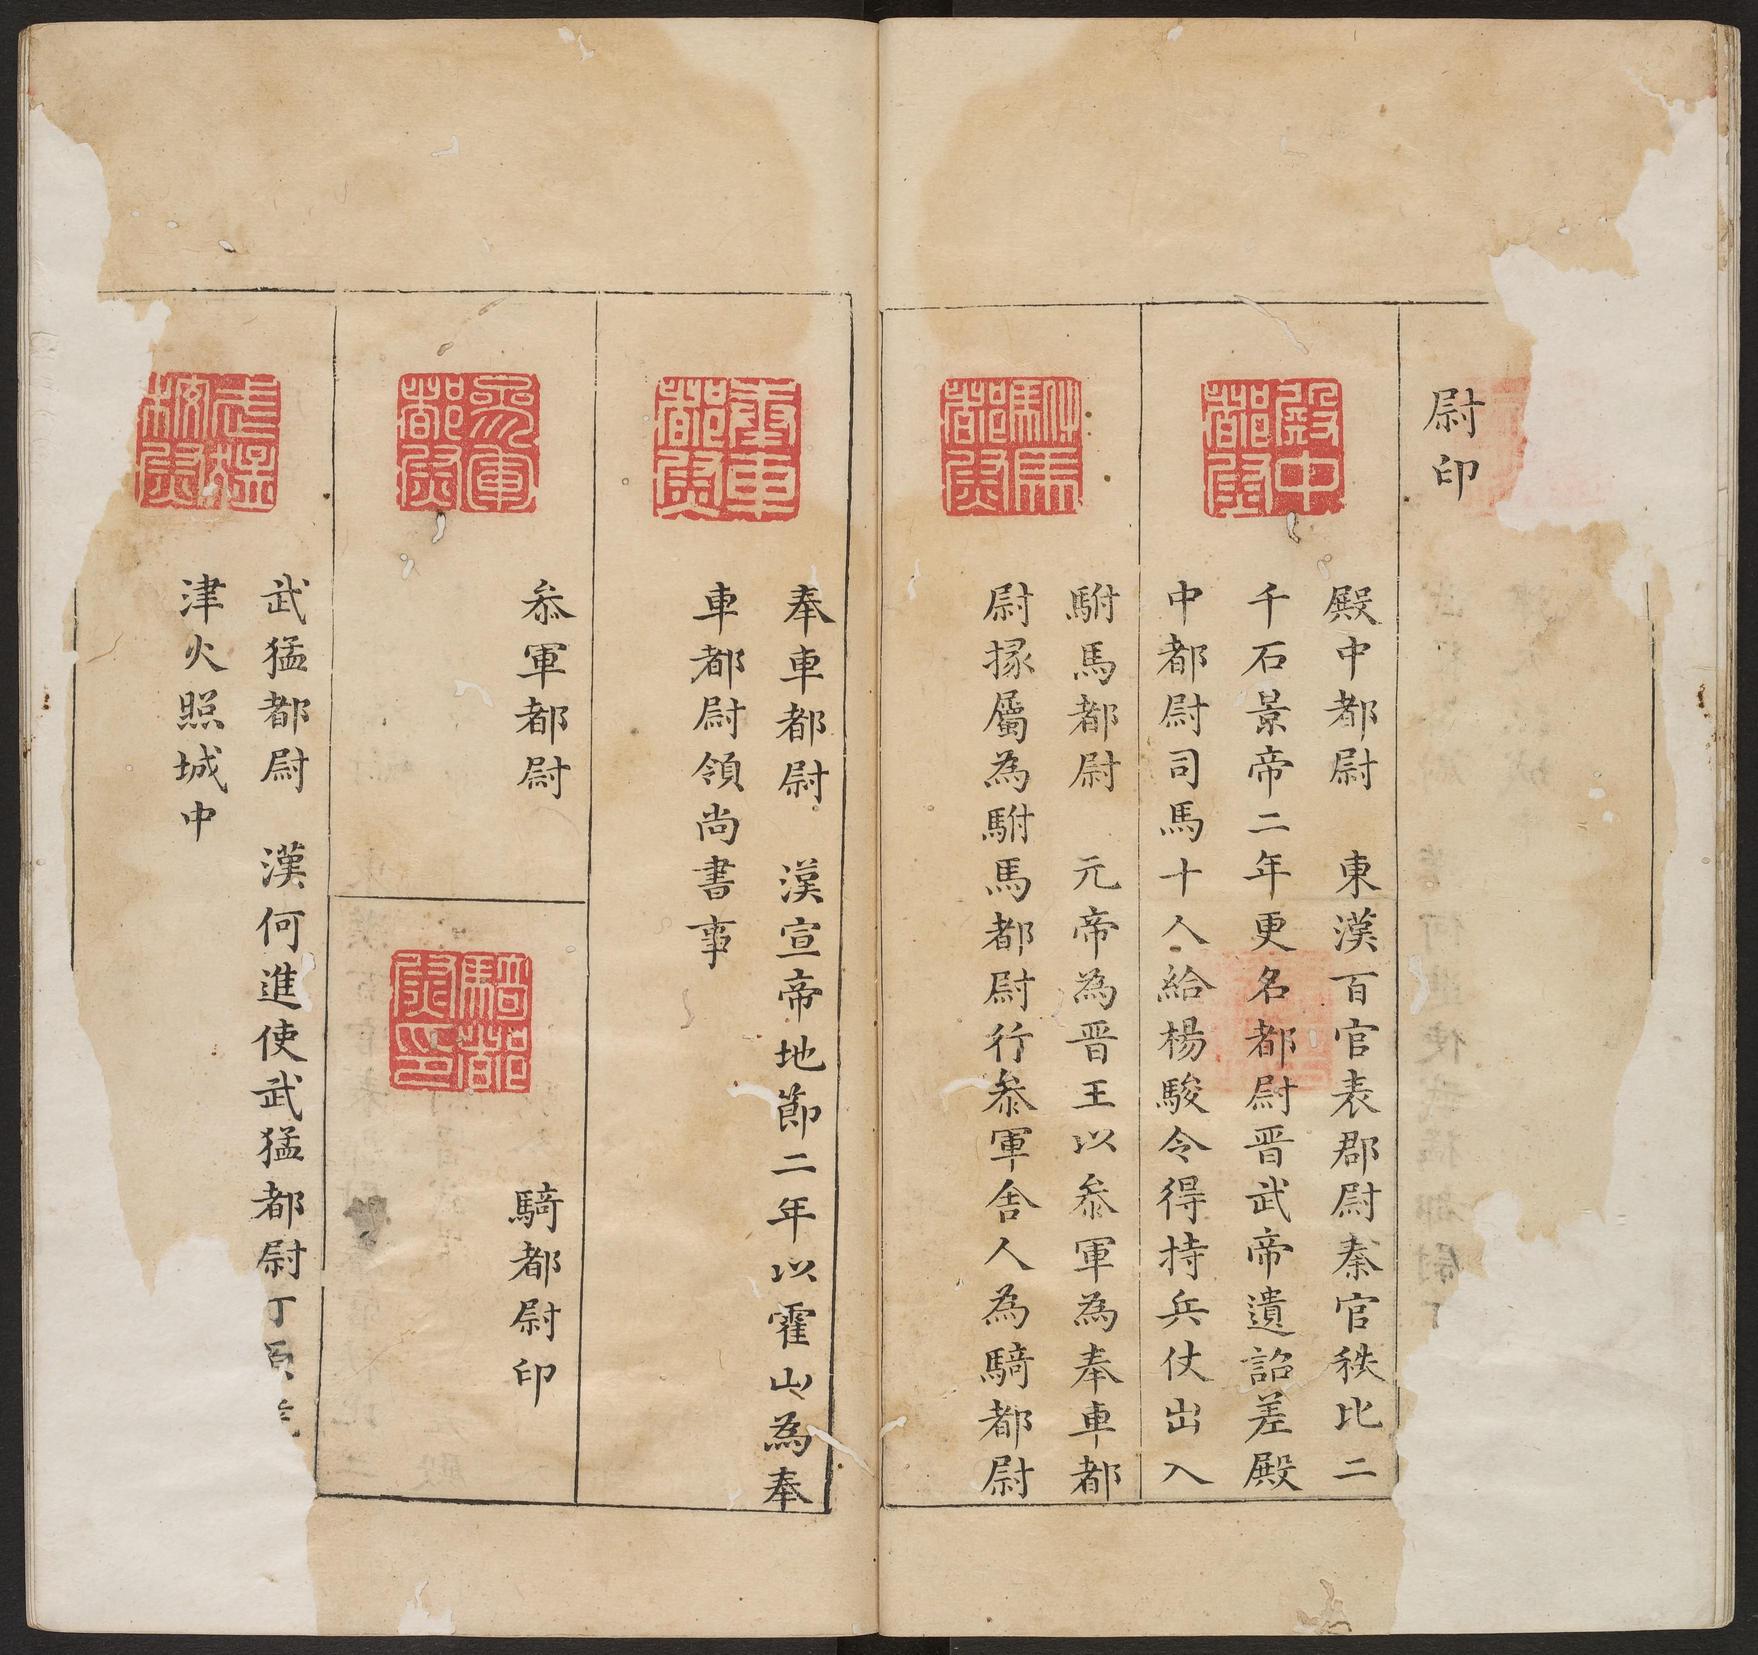 尉印
殿中
都尉
殿中都尉 東漢百官表郡尉秦官秩比二
千石景帝二年更名都尉晋武帝遺詔差殿
中都尉司馬十人給楊駿令得持兵仗出入
駙馬
都尉
駙馬都尉 元帝為晋王以叅軍為奉車都
尉掾屬為駙馬都尉行叅軍舍人為騎都尉
奉車
都尉
奉車都尉 漢宣帝地節二年以霍山為奉
車都尉領尚書事
叅軍
都尉
叅軍都尉
騎都
尉印
騎都尉印
武猛
校尉
武猛都尉 漢何進使武猛都尉丁原
津火照城中